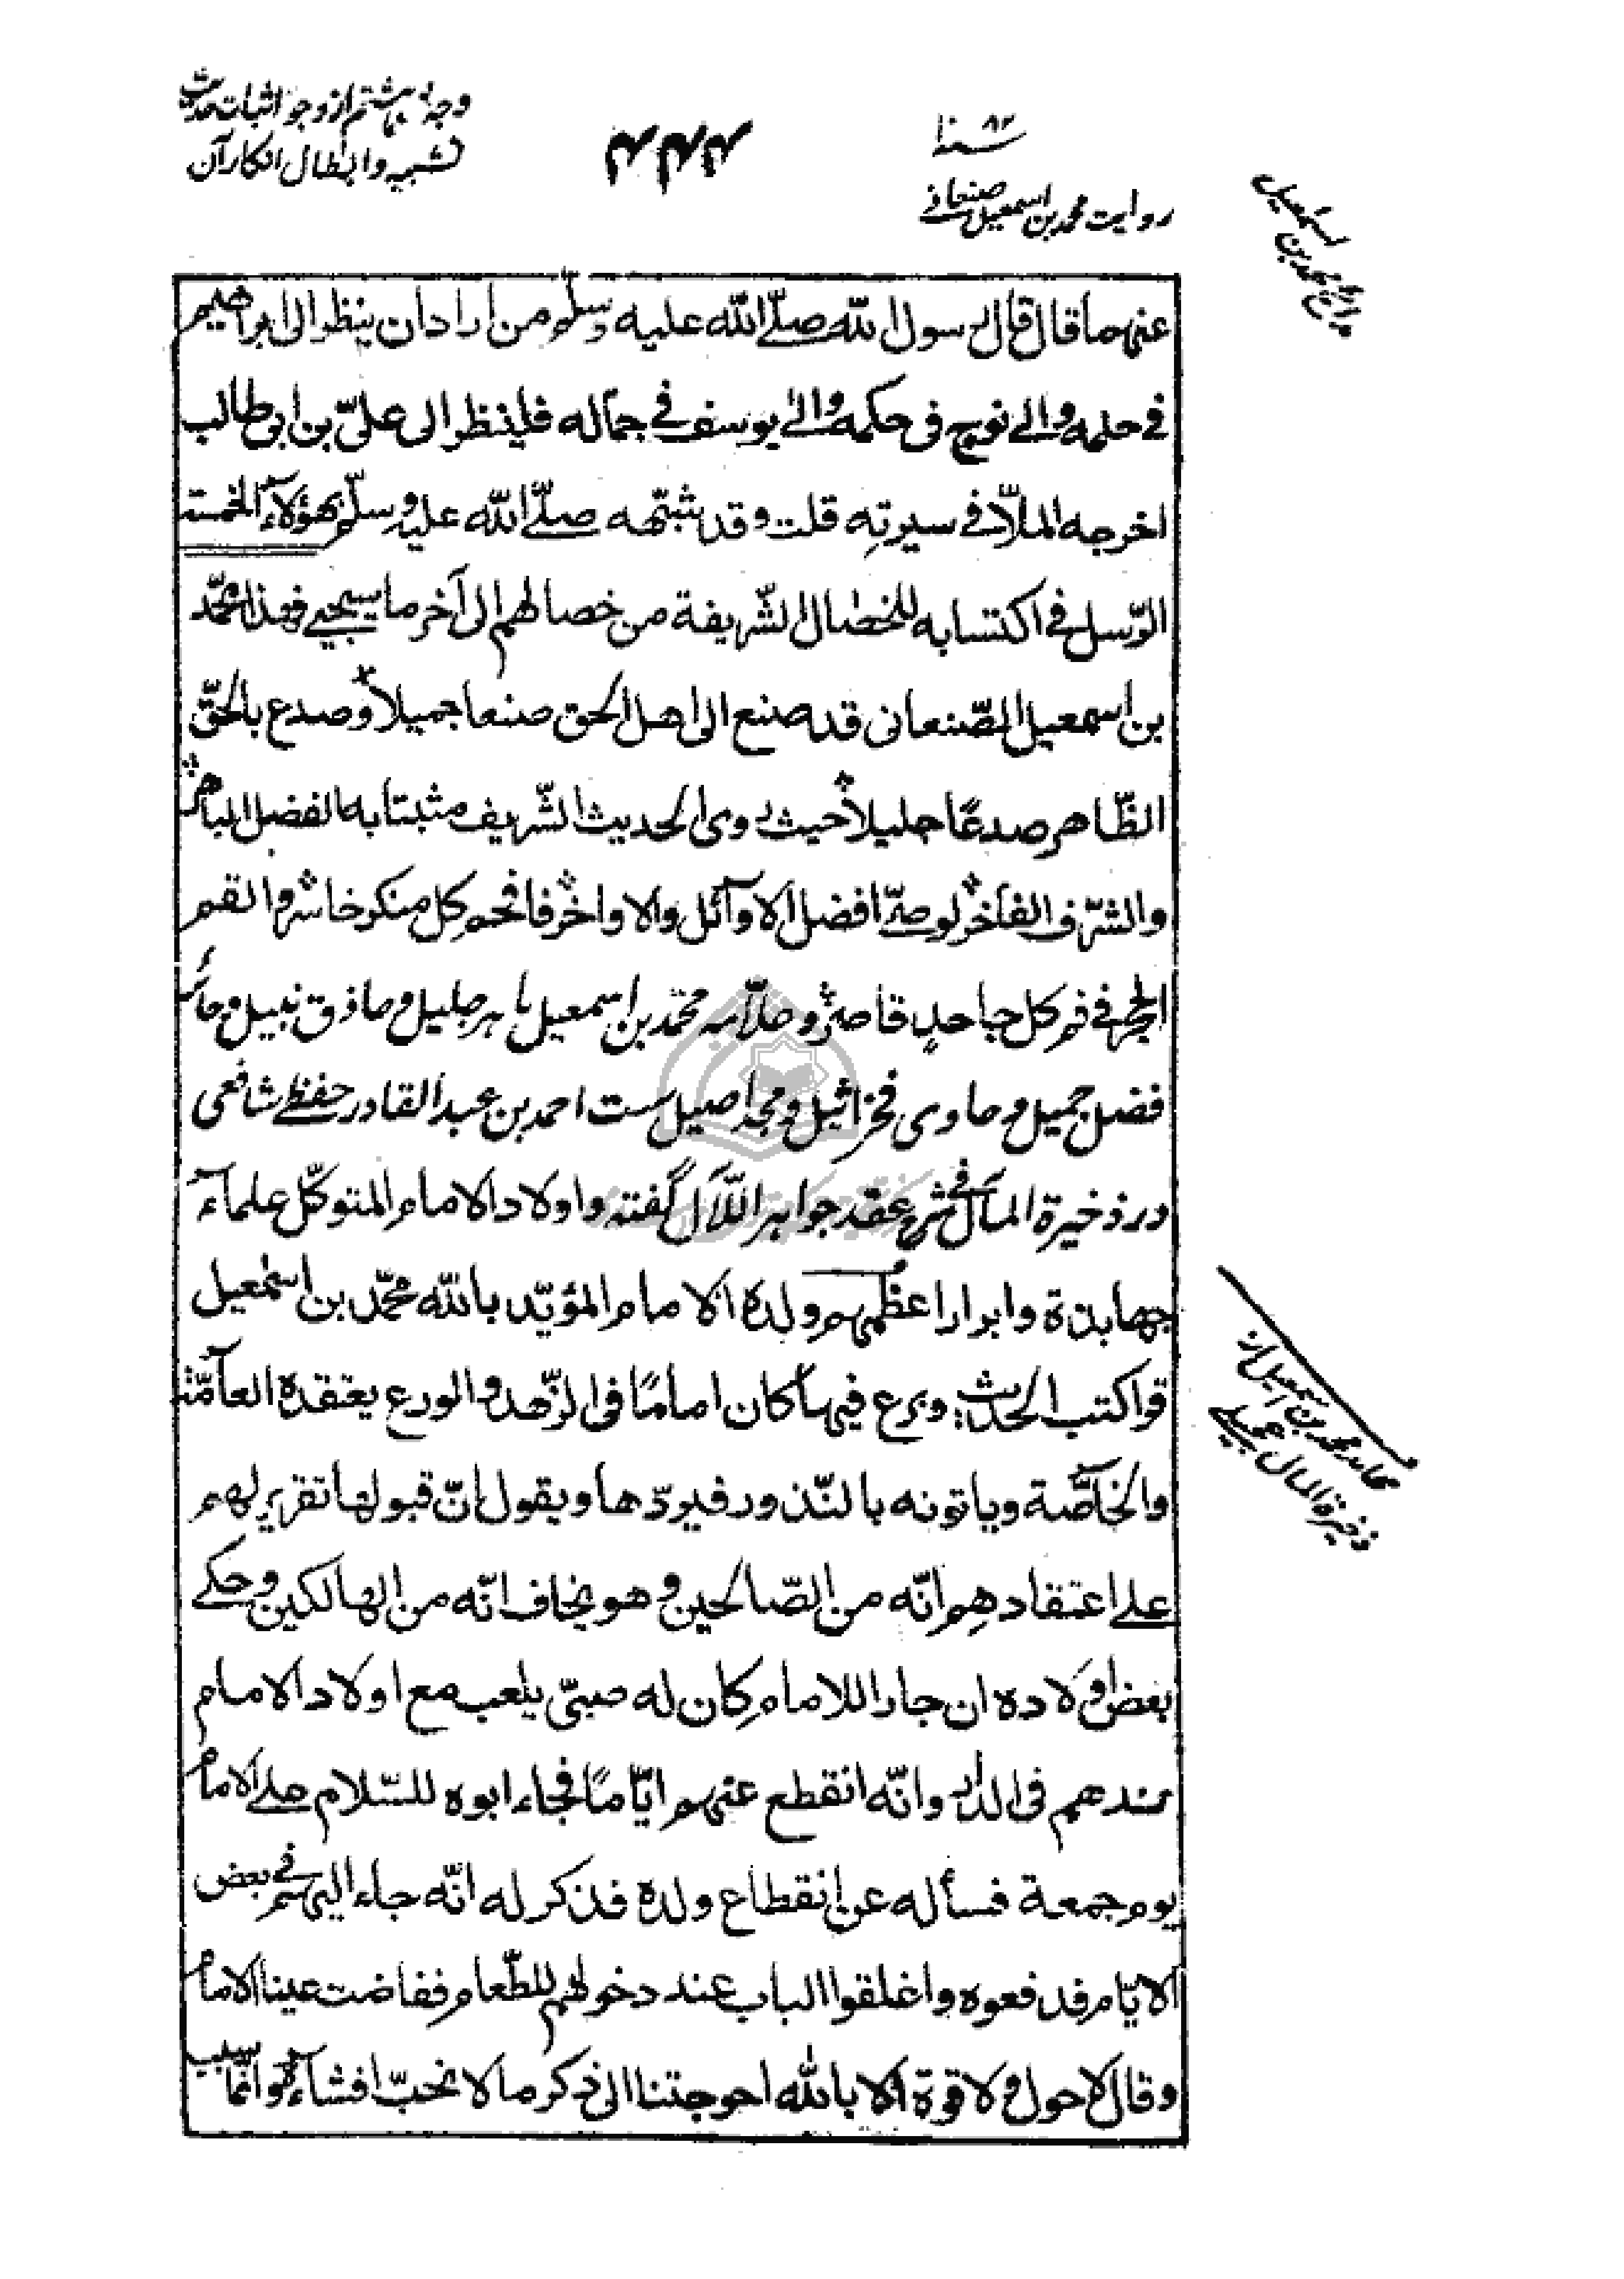 وجهٔ هشتم از وجوه اثبات حدیث
تشبیه و ابطال انکار آن
سند ۸۲
روایت محمد بن اسمعیل صنعانی
محمد بن اسمعیل
عنهما قال قال رسول الله صلّی الله علیه وسلّم من اراد ان ینظر الی ابراهیم
فی حلمه والی نوح فی حکمه والی یوسف فی جماله فلینظر الی علیّ بن ابی طالب
اخرجه الملّا فی سیرتِه قلت وقد شبّهه صلّی الله علیه وسلّم بهؤلاء الخمسة
الرّسل فی اکتسابه للخصال الشّریفة من خصالهم الی آخر ما سیجیٔ فهذا محمّد
بن اسمعیل الصّنعانی قد صنع الی اهل الحق صنعا جمیلاً وصدع بالحقّ
الظّاهر صدعًا جلیلاً حیث روی الحدیث الشّریف مثبتا به الفضل الباهر
والشّرف الفاخر لوصیّ افضل الاوآئل والاواخر فافحم کل منکر خاسر والقم
الحجر فی فم کل جاحدٍ قاصر وعلّامه محمّد بن اسمعیل ماهر جلیل و حاذق نبیل و حائز
فضل جمیل و حاوی فخر اثیل و مجد اصیل ست احمد بن عبد القادر حفظی شافعی
در ذخیرة المآل فی شرح عقد جواهر اللّآل گفته واولاد الامام المتوکّل علمآء
جهابذة وابرار اعظمهم ولده الامام المؤیّد بالله محمّد بن اسمٰعیل
قرأ کتب الحدیث وبرع فیها کان امامًا فی الزّهد والورع یعتقده العآمّة
والخآصّة ویاتونه بالنّذور فیردّها ویقول انّ قبولها تقریر لهم
علی اعتقادهم انّه من الصّالحین وهو یخاف انّه من الهالکین وحکی
بعض اولاده ان جارا للامام کان له صبیّ یلعب مع اولاد الامام
عندهم فی الدّار وانّه انقطع عنهم ایّامًا فجاء ابوه للسّلام علی الامام
یوم جمعة فسأله عن انقطاع ولده فذکر له انّه جاء الیهم فی بعض
الایّام فدفعوه واغلقوا الباب عند دخولهم للطّعام ففاضت عینا الامام
وقال لا حول ولا قوة الا بالله احوجتنا الی ذکر ما لا نحبّ افشآءه وانّما سبب
محامد محمد بن اسمعیل از
ذخیرة المال عجیلی